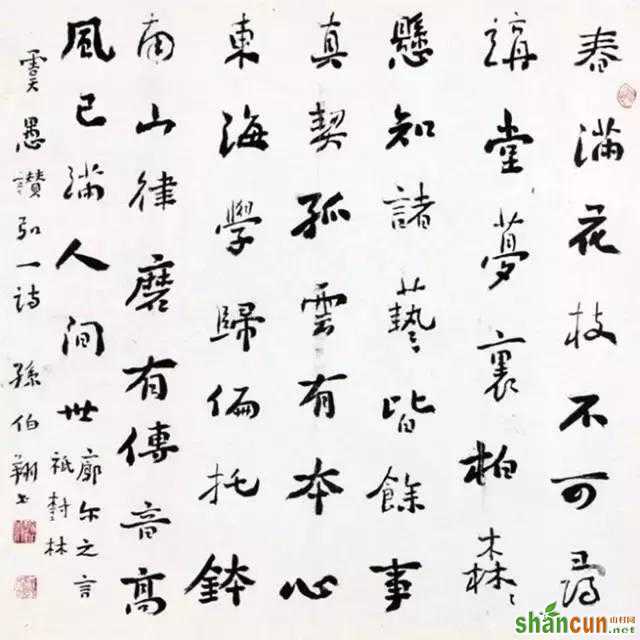 春滿花枝不可尋
講堂夢裏柏森〻
懸知諸藝皆餘事
真契孤雲有本心
東海學歸偏托鉢
南山律磨有傳音高
風已滿人間世
廓尔之言
祇樹林
虞愚讚弘一詩 孫伯翔书
山村网
shancun.net